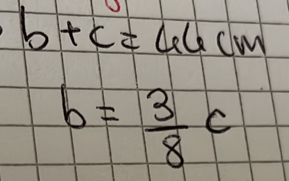 b + c = 44 cm
b = 3/8 c